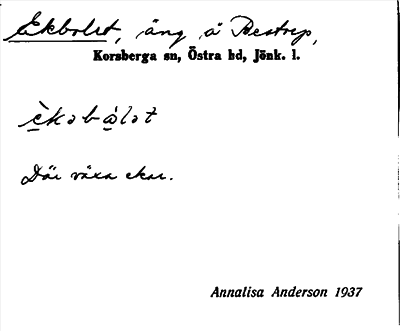 Ekbolet, äng, å Restrep,
Korsberga sn, Östra hd, Jönk. l.
è̱kəbå̱lət
Där växa ekar.
Annalisa Anderson 1937